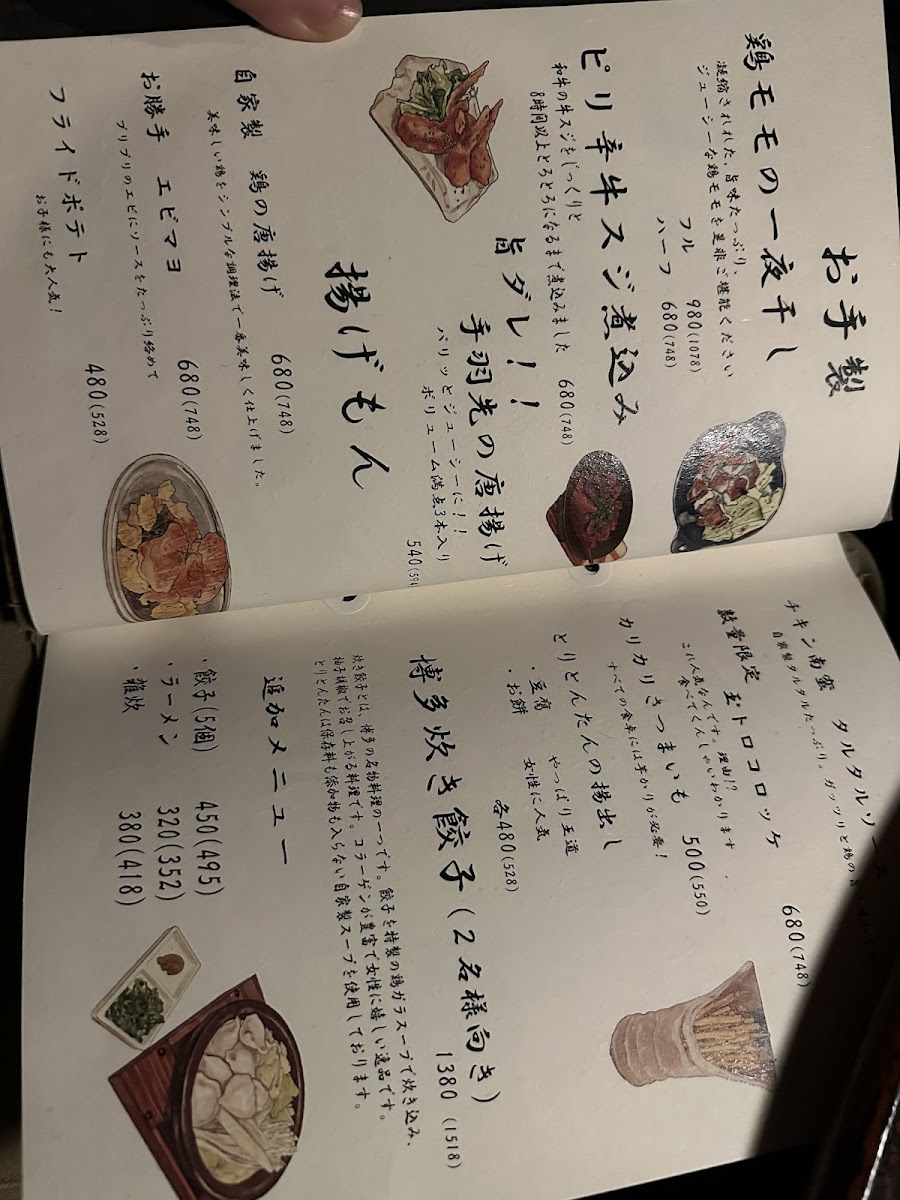 お手製
鶏モモの一夜干し
凝縮されれた、旨味たっぷり、
ジューシーな鶏モモを是非ご堪能ください
フル 980(1078)
ハーフ 680(748)
ピリ辛牛スジ煮込み
和牛の牛スジをじっくりと
8時間以上とろとろになるまで煮込みました 680(748)
旨ダレ!!
手羽先の唐揚げ
パリッとジューシーに!!
ボリューム満点3本入り
540(594
揚げもん
自家製 鶏の唐揚げ 680(748)
美味しい鶏をシンプルな調理法で一番美味しく仕上げました。
お勝手 エビマヨ 680(748)
プリプリのエビにソースをたっぷり絡めて
フライドポテト 480(528)
お子様にも大人気!
チキン南蛮 タルタルソース
自家製タルタルたっぷり。ガッツリと鶏の旨
680(748)
数量限定 玉トロコロッケ
これ人気なんです。理由!?
食べてくんしゃいわかります
カリカリさつまいも 500(550)
すべての食卓には芋かりが必要!
とりとんたんの揚出し
・豆腐 やっぱり王道
・お餅 女性に人気
各480(528)
博多炊き餃子(2名様向き)
1380 (1518)
炊き餃子とは、博多の名物料理の一つです。餃子を特製の鶏ガラスープで炊き込み、
柚子胡椒でお召し上がる料理です。コラーゲンが豊富で女性に嬉しい逸品です。
とりとんたんは保存料も添加物も入らない自家製スープを使用しております。
追加メニュー
・餃子(5個) 450(495)
・ラーメン 320(352)
・雑炊 380(418)